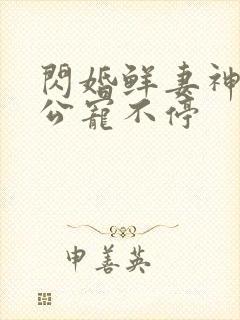 閃婚鮮妻神
公寵不停
申善英